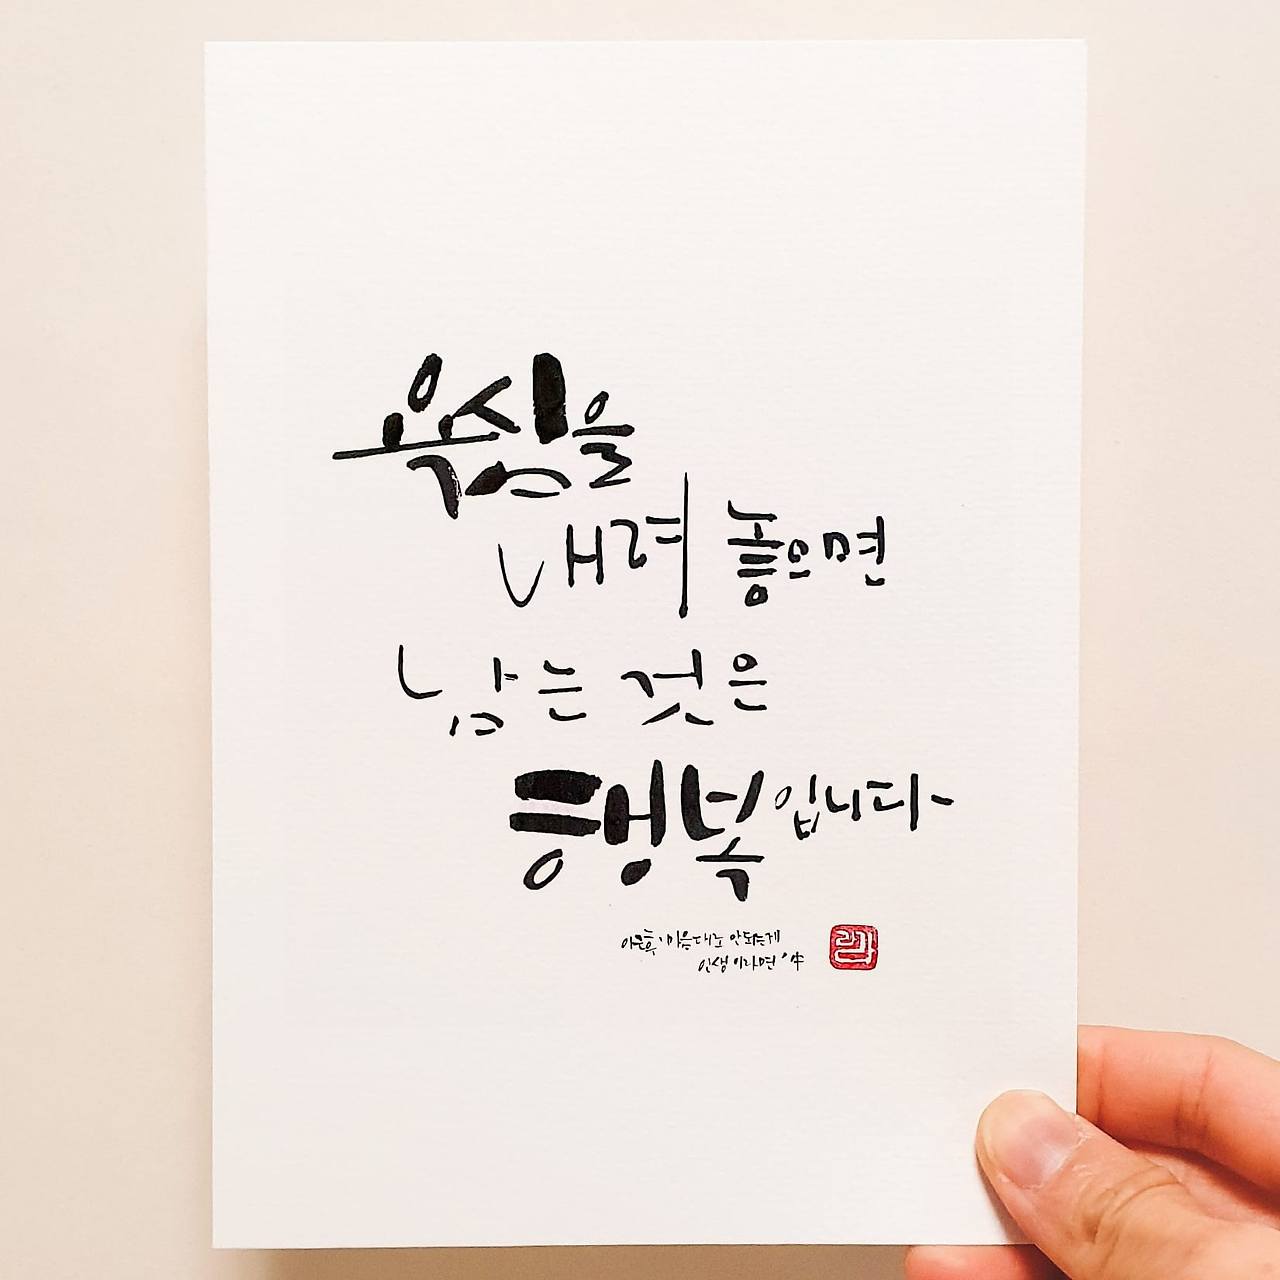 욕심을
내려 놓으면
남는 것은
행복입니다
'마음대로 안되는게
인생이라면' 中